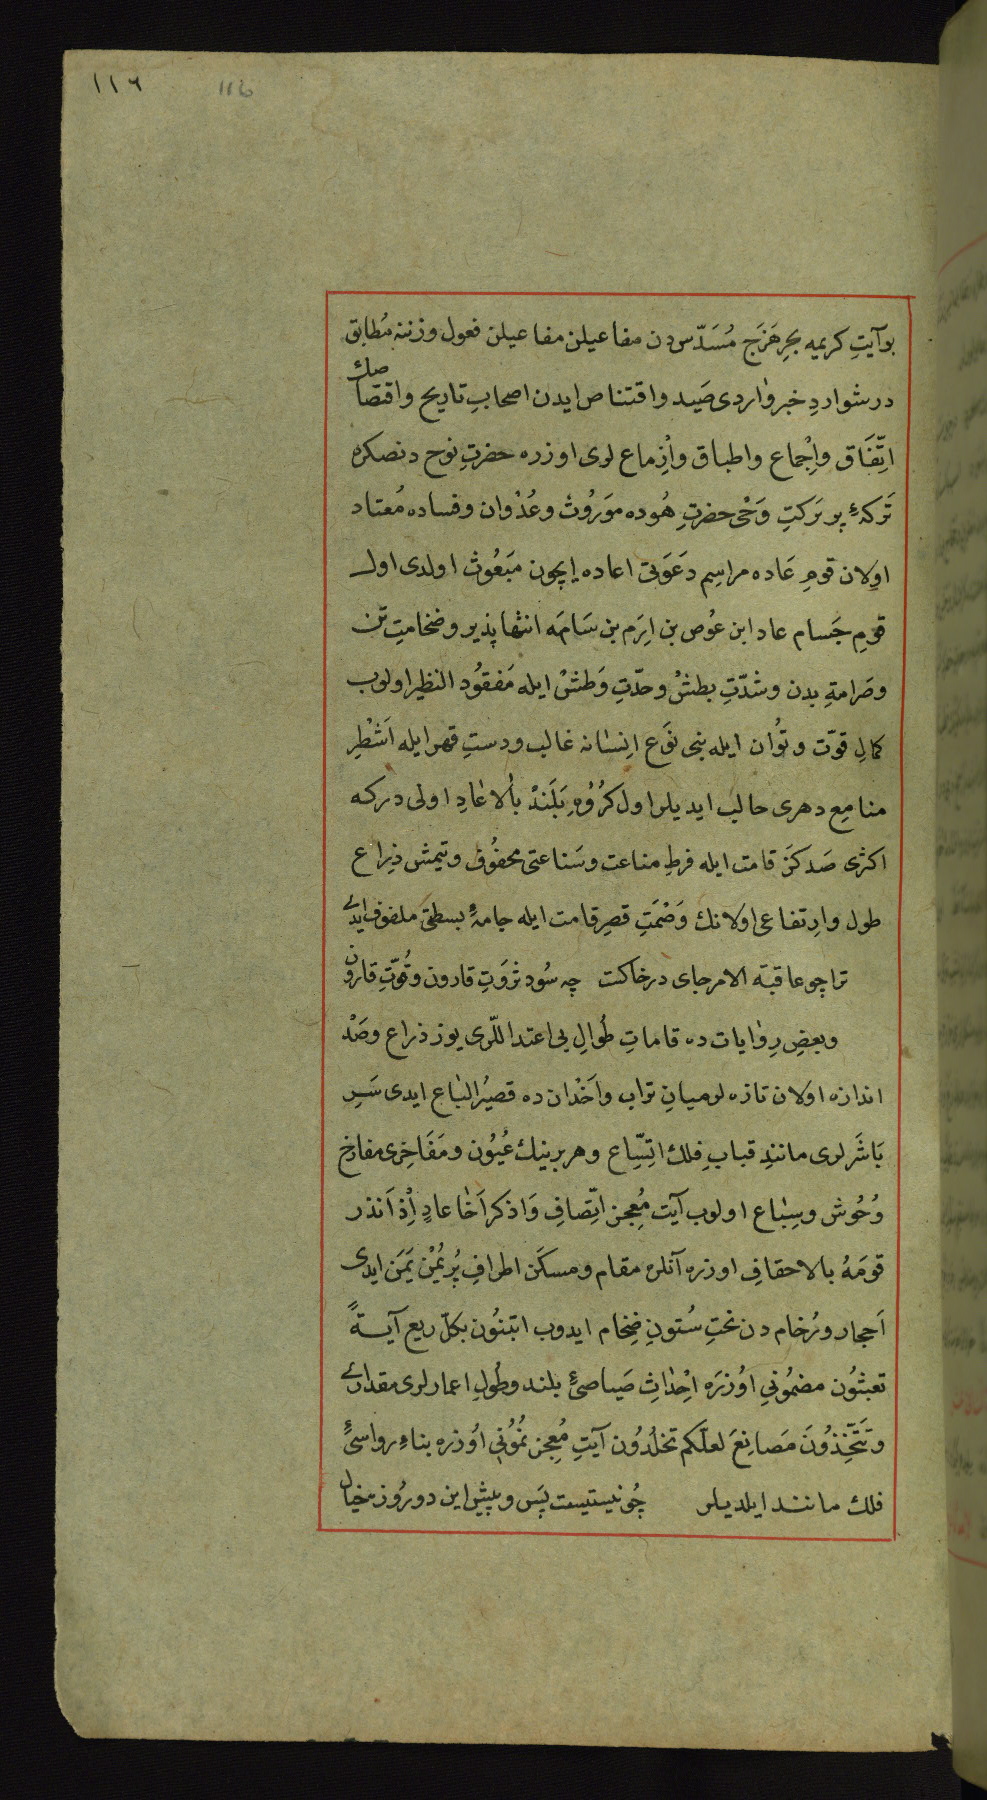 ١١٦ 116
بوآیتِ کریمه بحرِ هَزَج مُسَدّسدن مفاعیلن مفاعیلن فعول وزننه مُطابق
در شواردِ خبر وٰاردی صَید واقتناص ایدن اصحابِ تاریح واقتصاصك
اتِّفَاق واِجْماع واطباق واِزماع لری اوزره حضرتِ نوح دنصکره
تَرکهٔ پر بَرکتِ وَحْی حضرتِ هُوده مَوْرُوث وعُدْوان وفساده مُعتاد
اولان قومِ عَاده مراسِم دَعَوتی اعاده ایچون مَبْعُوث اولدی اول
قومِ جَسام عاد ابن عُوص بن اِرَم بن سَامَه انتها پذیر وضخامتِ تن
وصَرامةِ بدن وشدّتِ بطشْ وحدّتِ وَطشْ ایله مَفقُود النظیر اولوب
کمالِ قوّت وتُوٰان ایله بنی نَوْع اِنسٰانه غالب ودستِ قهر ایله اَشْطِر
منامِع دهری حالب ایدیلر اول کرُوْهِ بَلَنْدْ بٰالاعٰادِ اولی درکه
اکثری صَد کَز قامت ایله فرطِ مناعت وسَناعتی محفُوف ویتمش ذِراع
طول وارِتفاعی اولانك وَصْمَتِ قصرِ قامت ایله جامۀِ بسطتی ملفوف ایدی
ترا چو عاقبة الامر جای در خاکت چه سُود ثروَتِ قارون وقُوّتِ قارون
وبعضِ رِوٰایات ده قاماتِ طُوالِ بی اعتداللّری یوز ذراع وصَدْ
اندازه اولان تازه لر میانِ تراب واَخْدان ده قصیرُ البٰاع ایدی سَرِ
بَاشَرلری مانندِ قبابِ فلك اتِّسّاع وهر برینك عُیُون ومَفَاخِری مفارخِ
وُحُوش وسِبٰاع اولوب آیت مُعِجز اتِّصافِ وَاذکر اَخٰا عادٍ اِْذ اَنذر
قومَهُ بالاحقافِ اوزره آنلره مقام ومسکَن اطرافِ پُر یُمْنِ یَمَن ایدی
اَحجار ورُخام دن نحتِ سُتونِ ضِخام ایدوب اتبنُون بکلّ ریع آیـةً
تعبثُون مضمُونی اوُزرَه اِحْدٰاثِ صَیاصیٔ بلند وطُولِ اعمارلری مقداری
وتَتّخِذُونَ مَصٰانِعَ لعلّکم تخلُدُون آیتِ مُعجِز نُمُونی اوُزره بناءِ رواسیٔ
فلك مانند ایلدیلر چُو نیستیست پَس وپیش این دو رُوز خیال